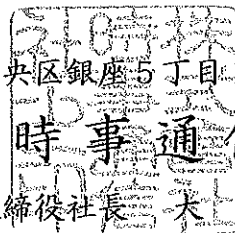 央区銀座5丁目
時事通
締役社長 大